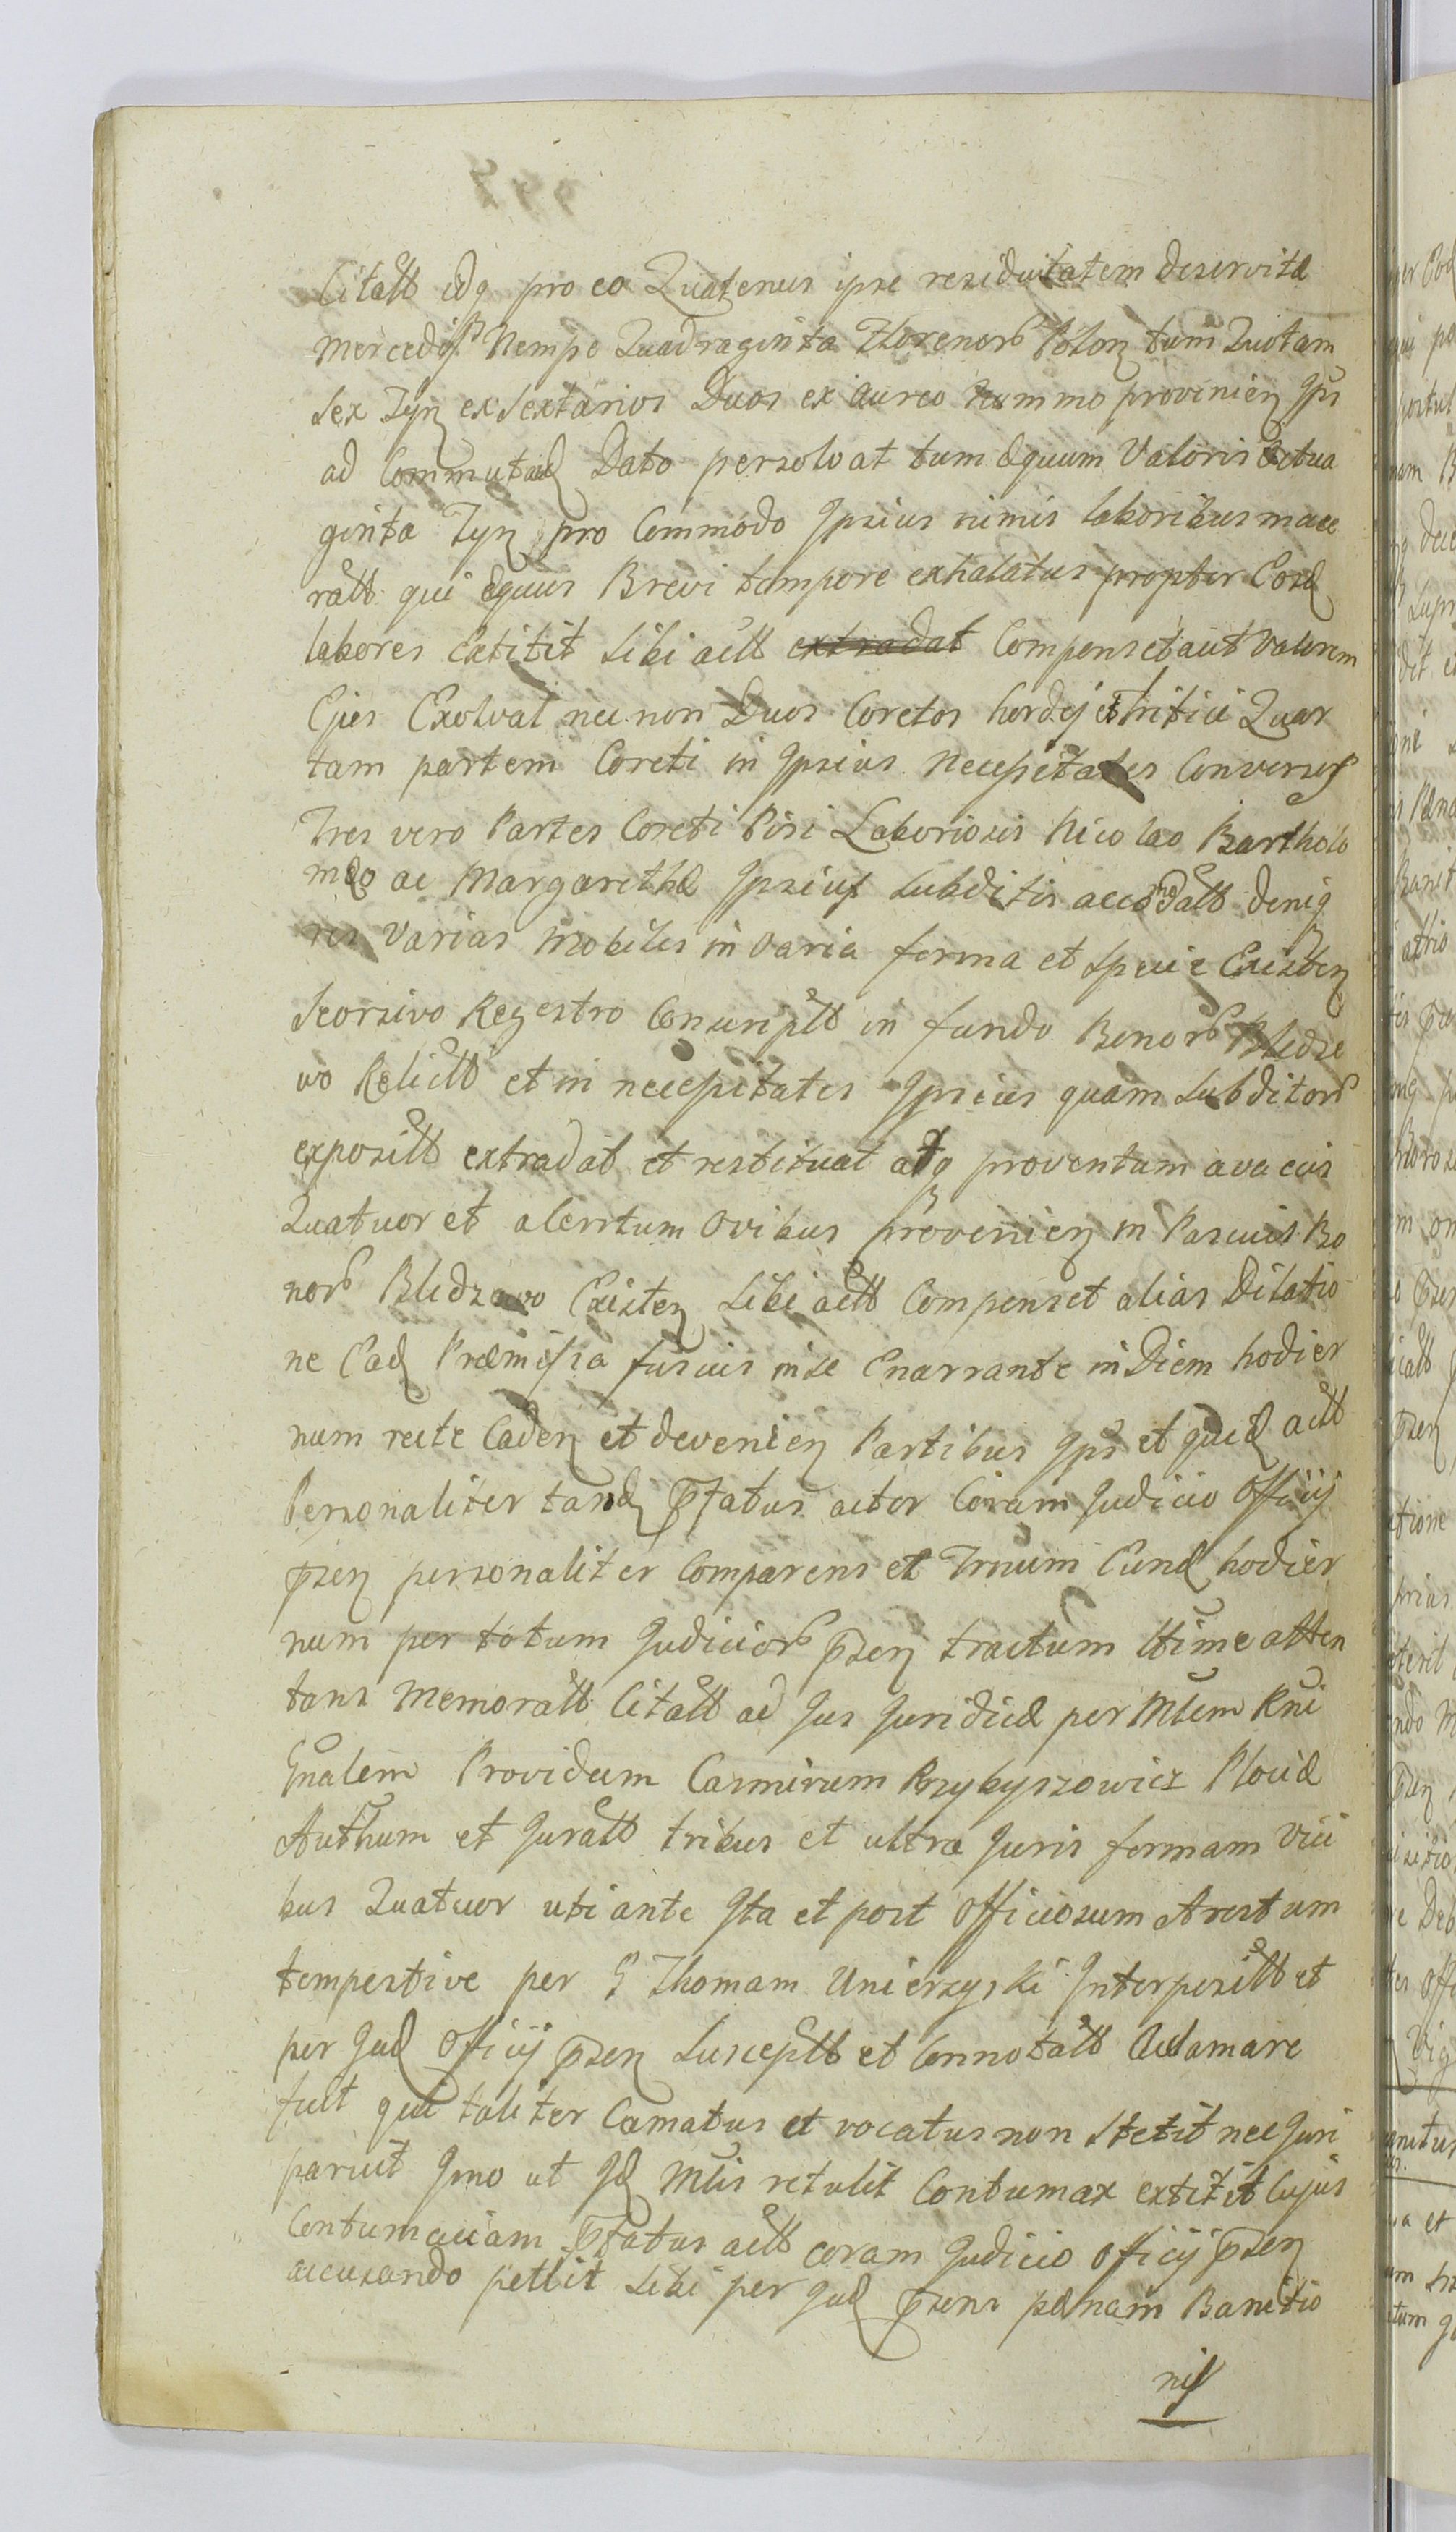 Citatt idq pro eo Quatenus ipse residuitatem deservitæ
mercedis Nempe Quadraginta Florenorb Polon tum Quotam
sex Tyn ex sextarios Duos ex aureo nummo provenien Ips
ad Commutand Dato persolvat tum equum Valoris Octua
ginta Tyn pro Commodo Ipsius nimis laboribus mace
ratt qui equus Brevi tempore exhalatus propter Eosd
labores Extitit sibi actt extradat Compenset aut Valorem
Ejus Exolvat nec non Duos Coretos hordej et tritici Quar
tam partem Coreti in Ipsius necessitates Conversos
Tres vero Partes Coreti Pisi Laboriosis Nicolao Bartholo
meo ac Margarethæ Ipsius subditis accomodatt deniq
res Varias mobiles in varia forma et specie Existen
Seorsivo Regestro Conscriptt in fundo Bonorb Bledze
wo Relictt et in necessitates Ipsius quam subditorb
expositt extradat et restituat atq proventum a vaccis
Quatuor et a Centum Ovibus provenien in Pascuis Bo
norb Bledzewo Existen sibi actt Compenset alias Dilatio
ne Ead Præmissa fusius in se Enarrante in Diem hodier
num recte Caden et devenien Partibus Ips et quid actt
Personaliter tand Pstatus actor Coram Judicio Officij
psen personaliter Comparens et Trnum Eund hodier
num per totum Judiciorb psen tractum ltime atten
tans memoratt Citatt ad Jus Juridice per Mlem Rni
Gnalem Providum Casmirum Przybyszowicz Plocid
Authum et Juratt tribus et ultra Juris formam Vici
bus Quatuor uti ante Ita et post Officiosum Arestum
tempestive per G Thomam Unierzyski Interpositt et
per Jud Officij psen susceptt et Connotatt Acclamare
fecit qui taliter Camatus et vocatus non stetit nec Juri
paruit Imo ut Id Mlis retulit Contumax extitit Cujus
Contumaciam Pstatus actt coram Judicio Officij psen
accusando petiit sibi per Jud psens pænam Banitio
nis